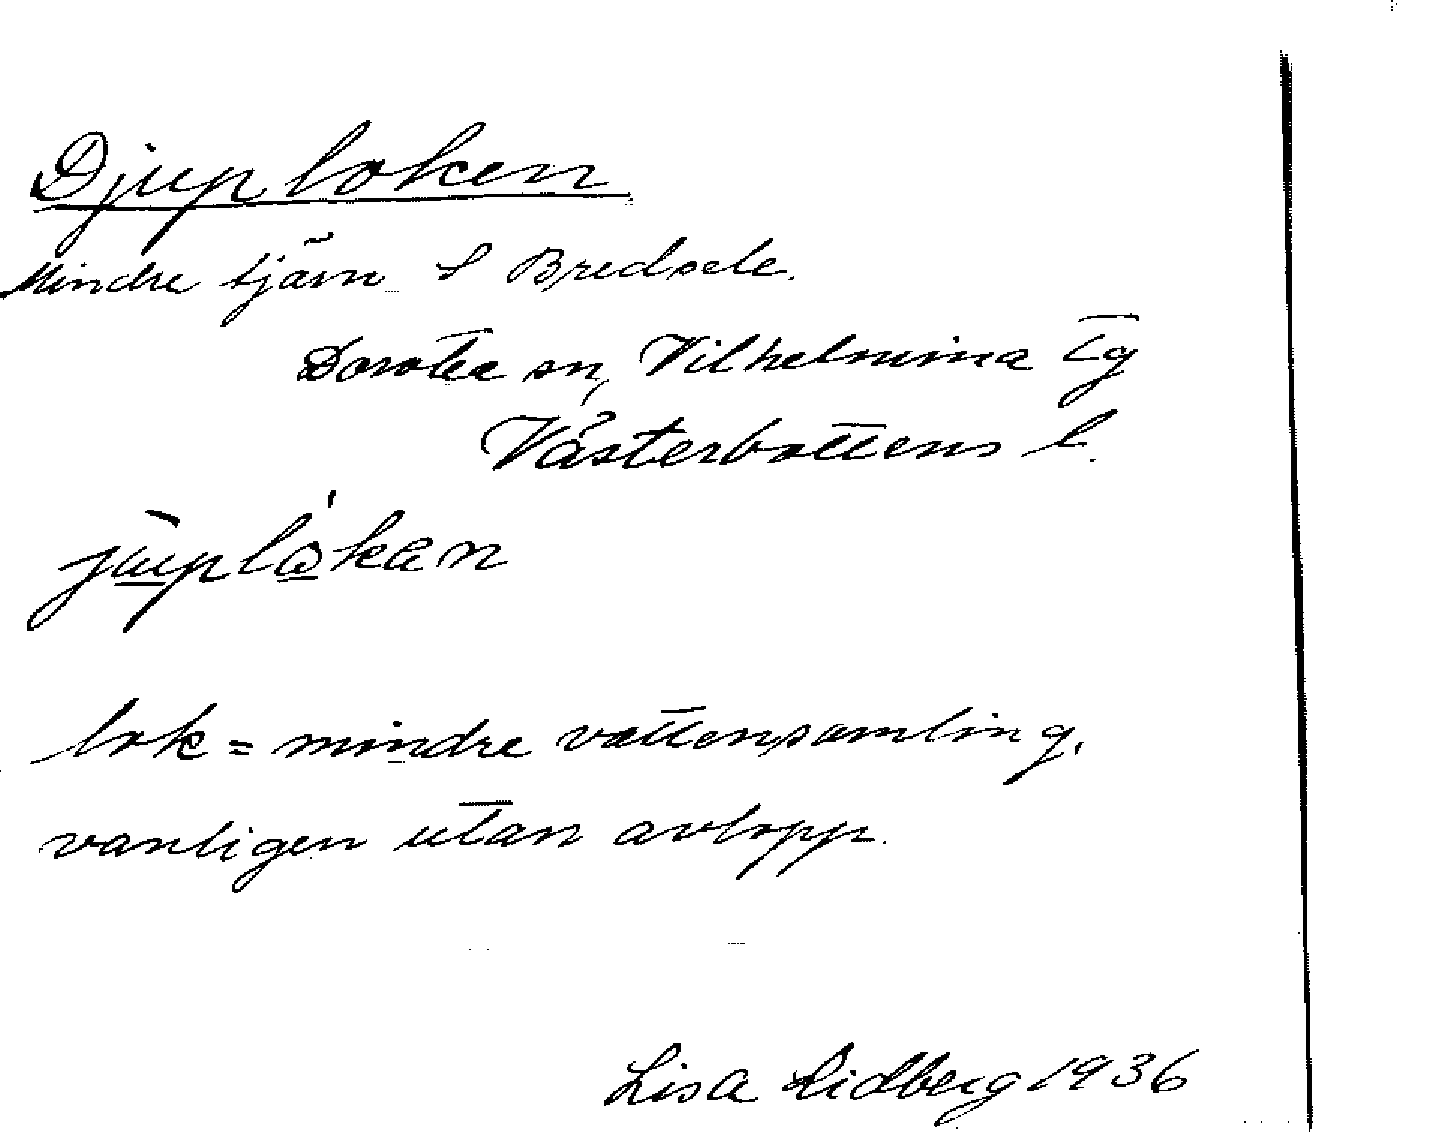 Djuploken
Mindre tjärn S Bredsele.
Dorotea sn, Vilhelmina tg
Västerbottens l.
jùplǻkan
lok = mindre vattensamling,
vanligen utan avlopp.
Lisa Lidberg 1936